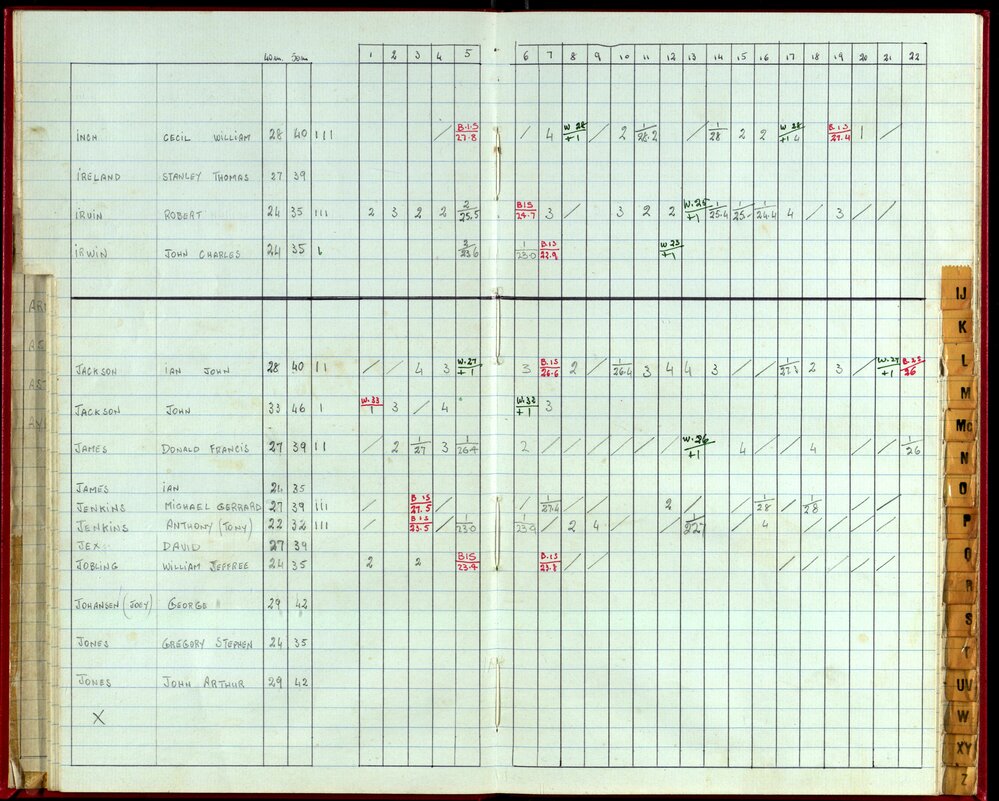 40m. 50m 1 2 3 4 5 6 7 8 9 10 11 12 13 14 15 16 17 18 19 20 21 22
INCH CECIL WILLIAM 28 40 III / B.I.S 27.8 / 4 W 28 +1 / 2 1 28.2 / 1 28 2 2 W 28 +1 4 B I S 27.4 1 /
IRELAND STANLEY THOMAS 27 39
IRVIN ROBERT 24 35 III 2 3 2 2 2 25.5 BIS 24.7 3 / 3 2 2 W.25 +1 1 25.4 1 25.- 1 24.4 4 / 3 / /
IRWIN JOHN CHARLES 24 35 I 2 23.6 1 23.0 B.I.S 22.9 W 23 +1
JACKSON IAN JOHN 28 40 II / / 4 3 W.27 +1 3 B.I.S 26.6 2 / 1 26.4 3 4 4 3 / / 1 27.3 2 3 / W.27 +1 26
JACKSON JOHN 33 46 I W.33 1 3 / 4 W.33 +1 3
JAMES DONALD FRANCIS 27 39 II / 2 1 27 3 1 26.4 2 / / / / / / W.26 +1 / 4 / / 4 / / / 1 26
JAMES IAN 21 35
JENKINS MICHAEL GERRARD 27 39 III / B I S 27.5 / / 1 27.4 / / / / 2 / / / 1 28 / 1 28 / / /
JENKINS ANTHONY (TONY) 22 32 III / B I S 23.5 / 1 23.0 1 23.9 / 2 4 / / / 1 22.7 / / 4 / / / / /
JEX DAVID 27 39
JOBLING WILLIAM JEFFREE 24 35 2 2 BIS 23.4 B.I.S 23.8 / / / / / / /
JOHANSEN (JOEY) GEORGE 29 42
JONES GREGORY STEPHEN 24 35
JONES JOHN ARTHUR 29 42
X
AR
AS
AST
AY
IJ
K
L
M
Mc
N
O
P
Q
R
S
T
UV
W
XY
Z